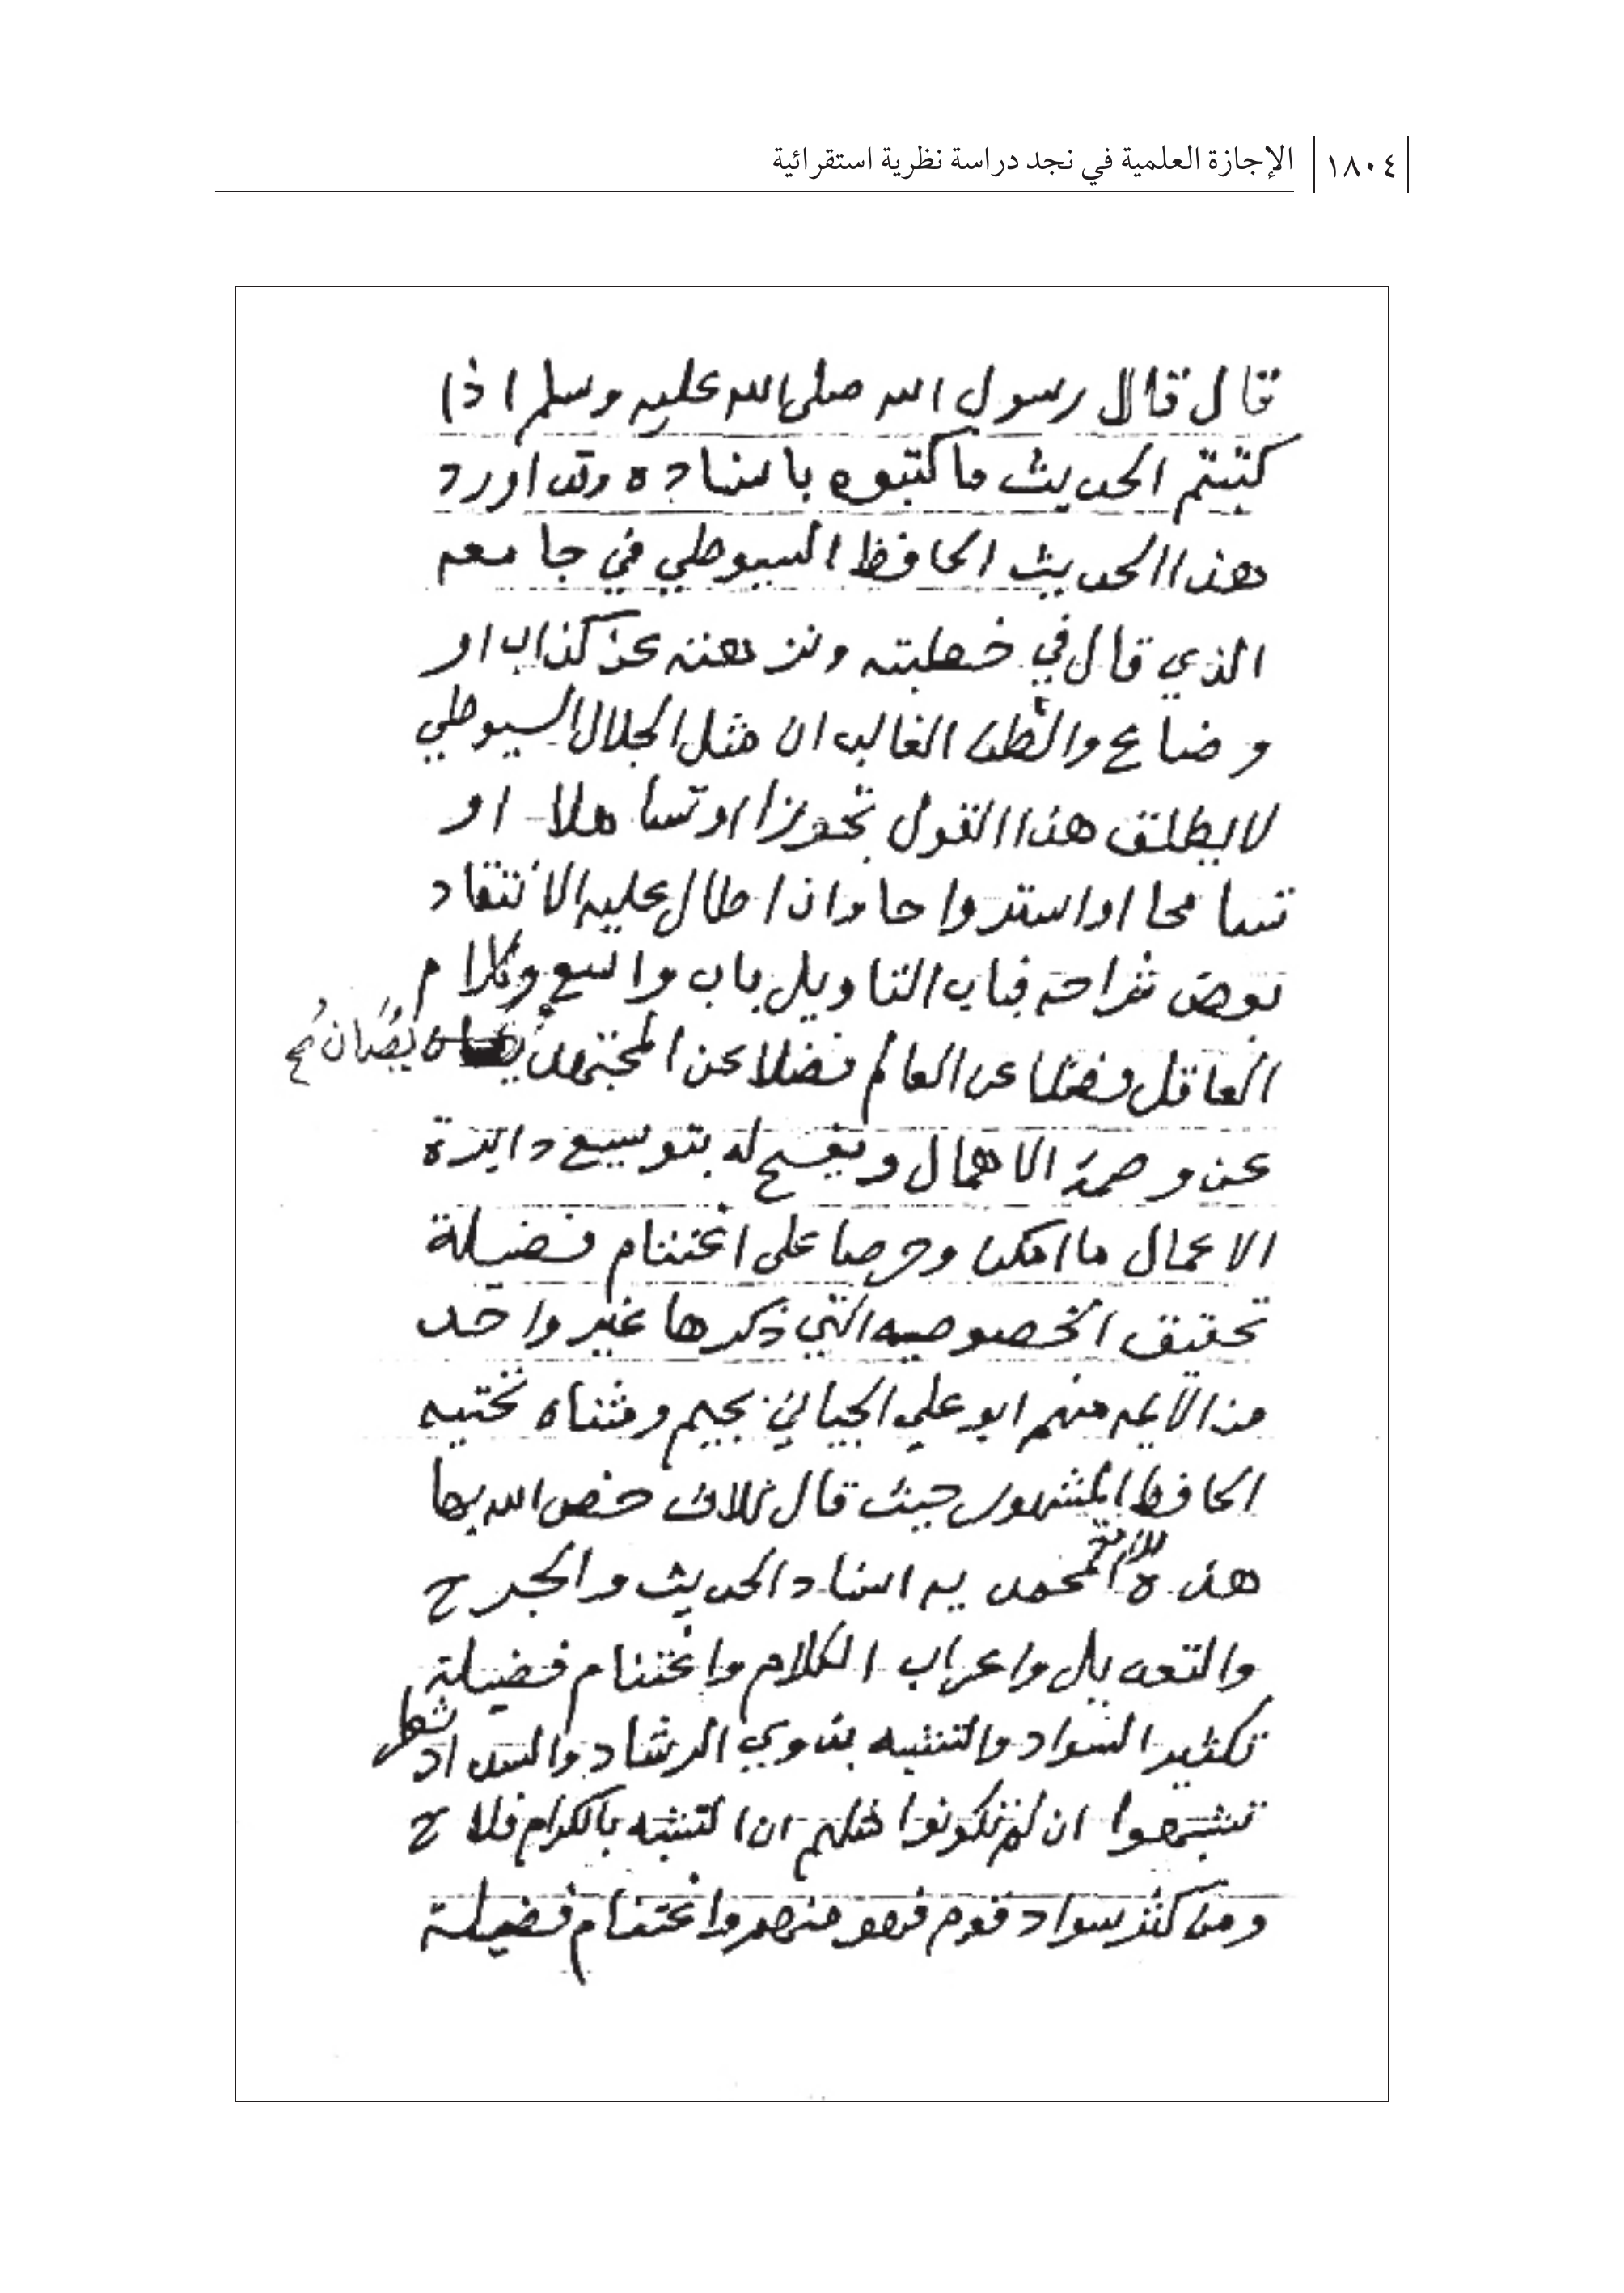 ١٨٠٤ الإجازة العلمية في نجد دراسة نظرية استقرائية
قال قال رسول الله صلى الله عليه وسلم اذا
كتبتم الحديث فاكتبوه باسناده وقد اورد
هذا الحديث الحافظ السيوطي في جامعه
الذي قال في خطبته ونزهته عن كذاب او
وضاع والظن الغالب ان مثل الجلال السيوطي
لا يطلق هذا القول تجوزا او تساهلا او
تسامحا او استرواحا واذا طال عليه الانتقاد
بعض شراحه فباب التاويل باب واسع وكلام
العاقل فضلا عن العالم فضلا عن المجتهد يصان
عن وصمة الاهمال ويفسح له بتوسيع دايرة
الاعمال ما امكن وحرصا على اغتنام فضيلة
تحقيق الخصوصيه التي ذكرها غير واحد
من الايمه منهم ابو علي الجياني بجيم ومثناه تحتيه
الحافظ المشهور حيث قال ثلاث خص الله بها
هذه الامة المحمديه اسناد الحديث والجرح
والتعديل واعراب الكلام واغتنام فضيلة
تكثير السواد والتشبيه بذوي الرشاد والسداد شعر
تشبهوا ان لم تكونوا مثلهم ان التشبه بالكرام فلاح
ومن كثر سواد قوم فهو منهم واغتنام فضيلة